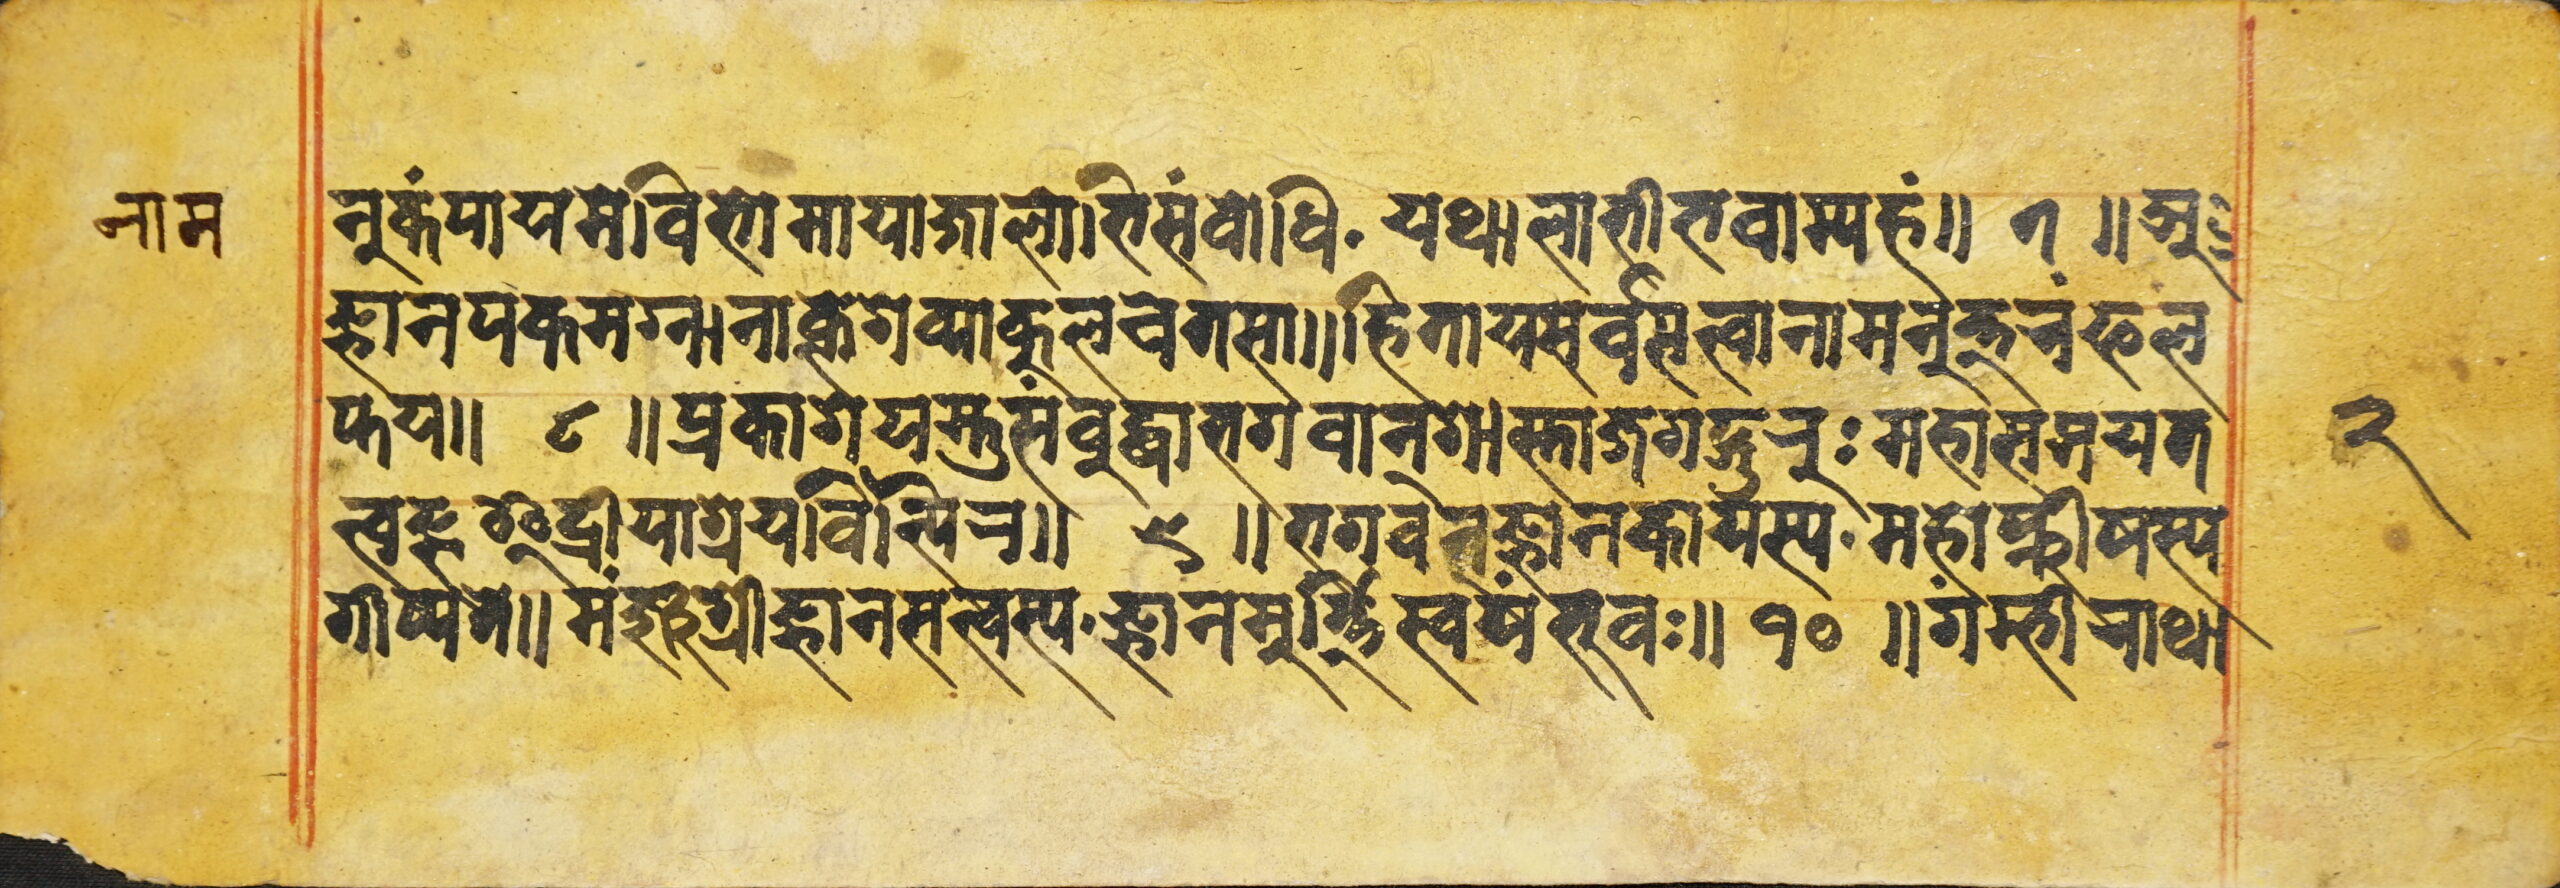 नाम
नुकंपायमेविभोमायाजालाभिसंबोधि. यथालाभीभवाम्यहं॥ ७ ॥अ
ज्ञानपंकमग्नानाक्लेशव्याकुलचेतसा॥हितायसर्वसत्वानामनुत्तरंफल
प्तय॥ ८ ॥प्रकाशयस्तुसंबुद्धाभगवानशास्ताजगद्गुरुः महासमयत
२
त्वज्ञइन्द्रीयाशयवित्पिर॥ ९ ॥भगवनज्ञानकायस्य.महोष्णीषस्य
गीष्पते॥मंञ्जुश्रीज्ञानसत्वस्य.ज्ञानमुर्त्तिस्वयंभुवः॥ १० ॥गंम्भीराथा